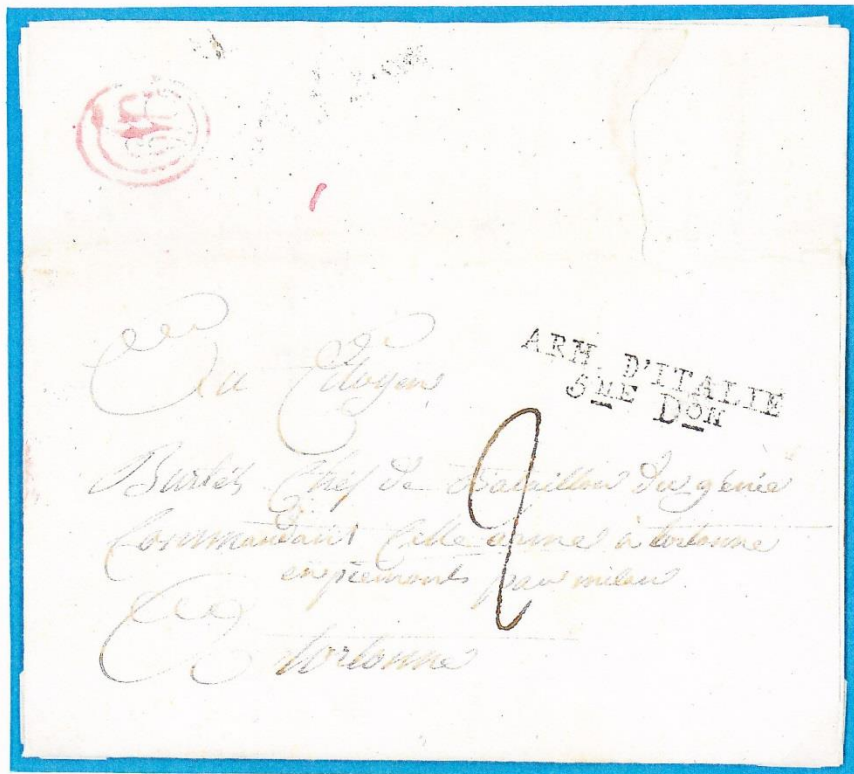 ARM. D'ITALIE
5ME DON
2
Au Citoyen
Chef de Bataillon du génie
Commandant Cette arme à tortonne
en piemont par milan
A tortonne